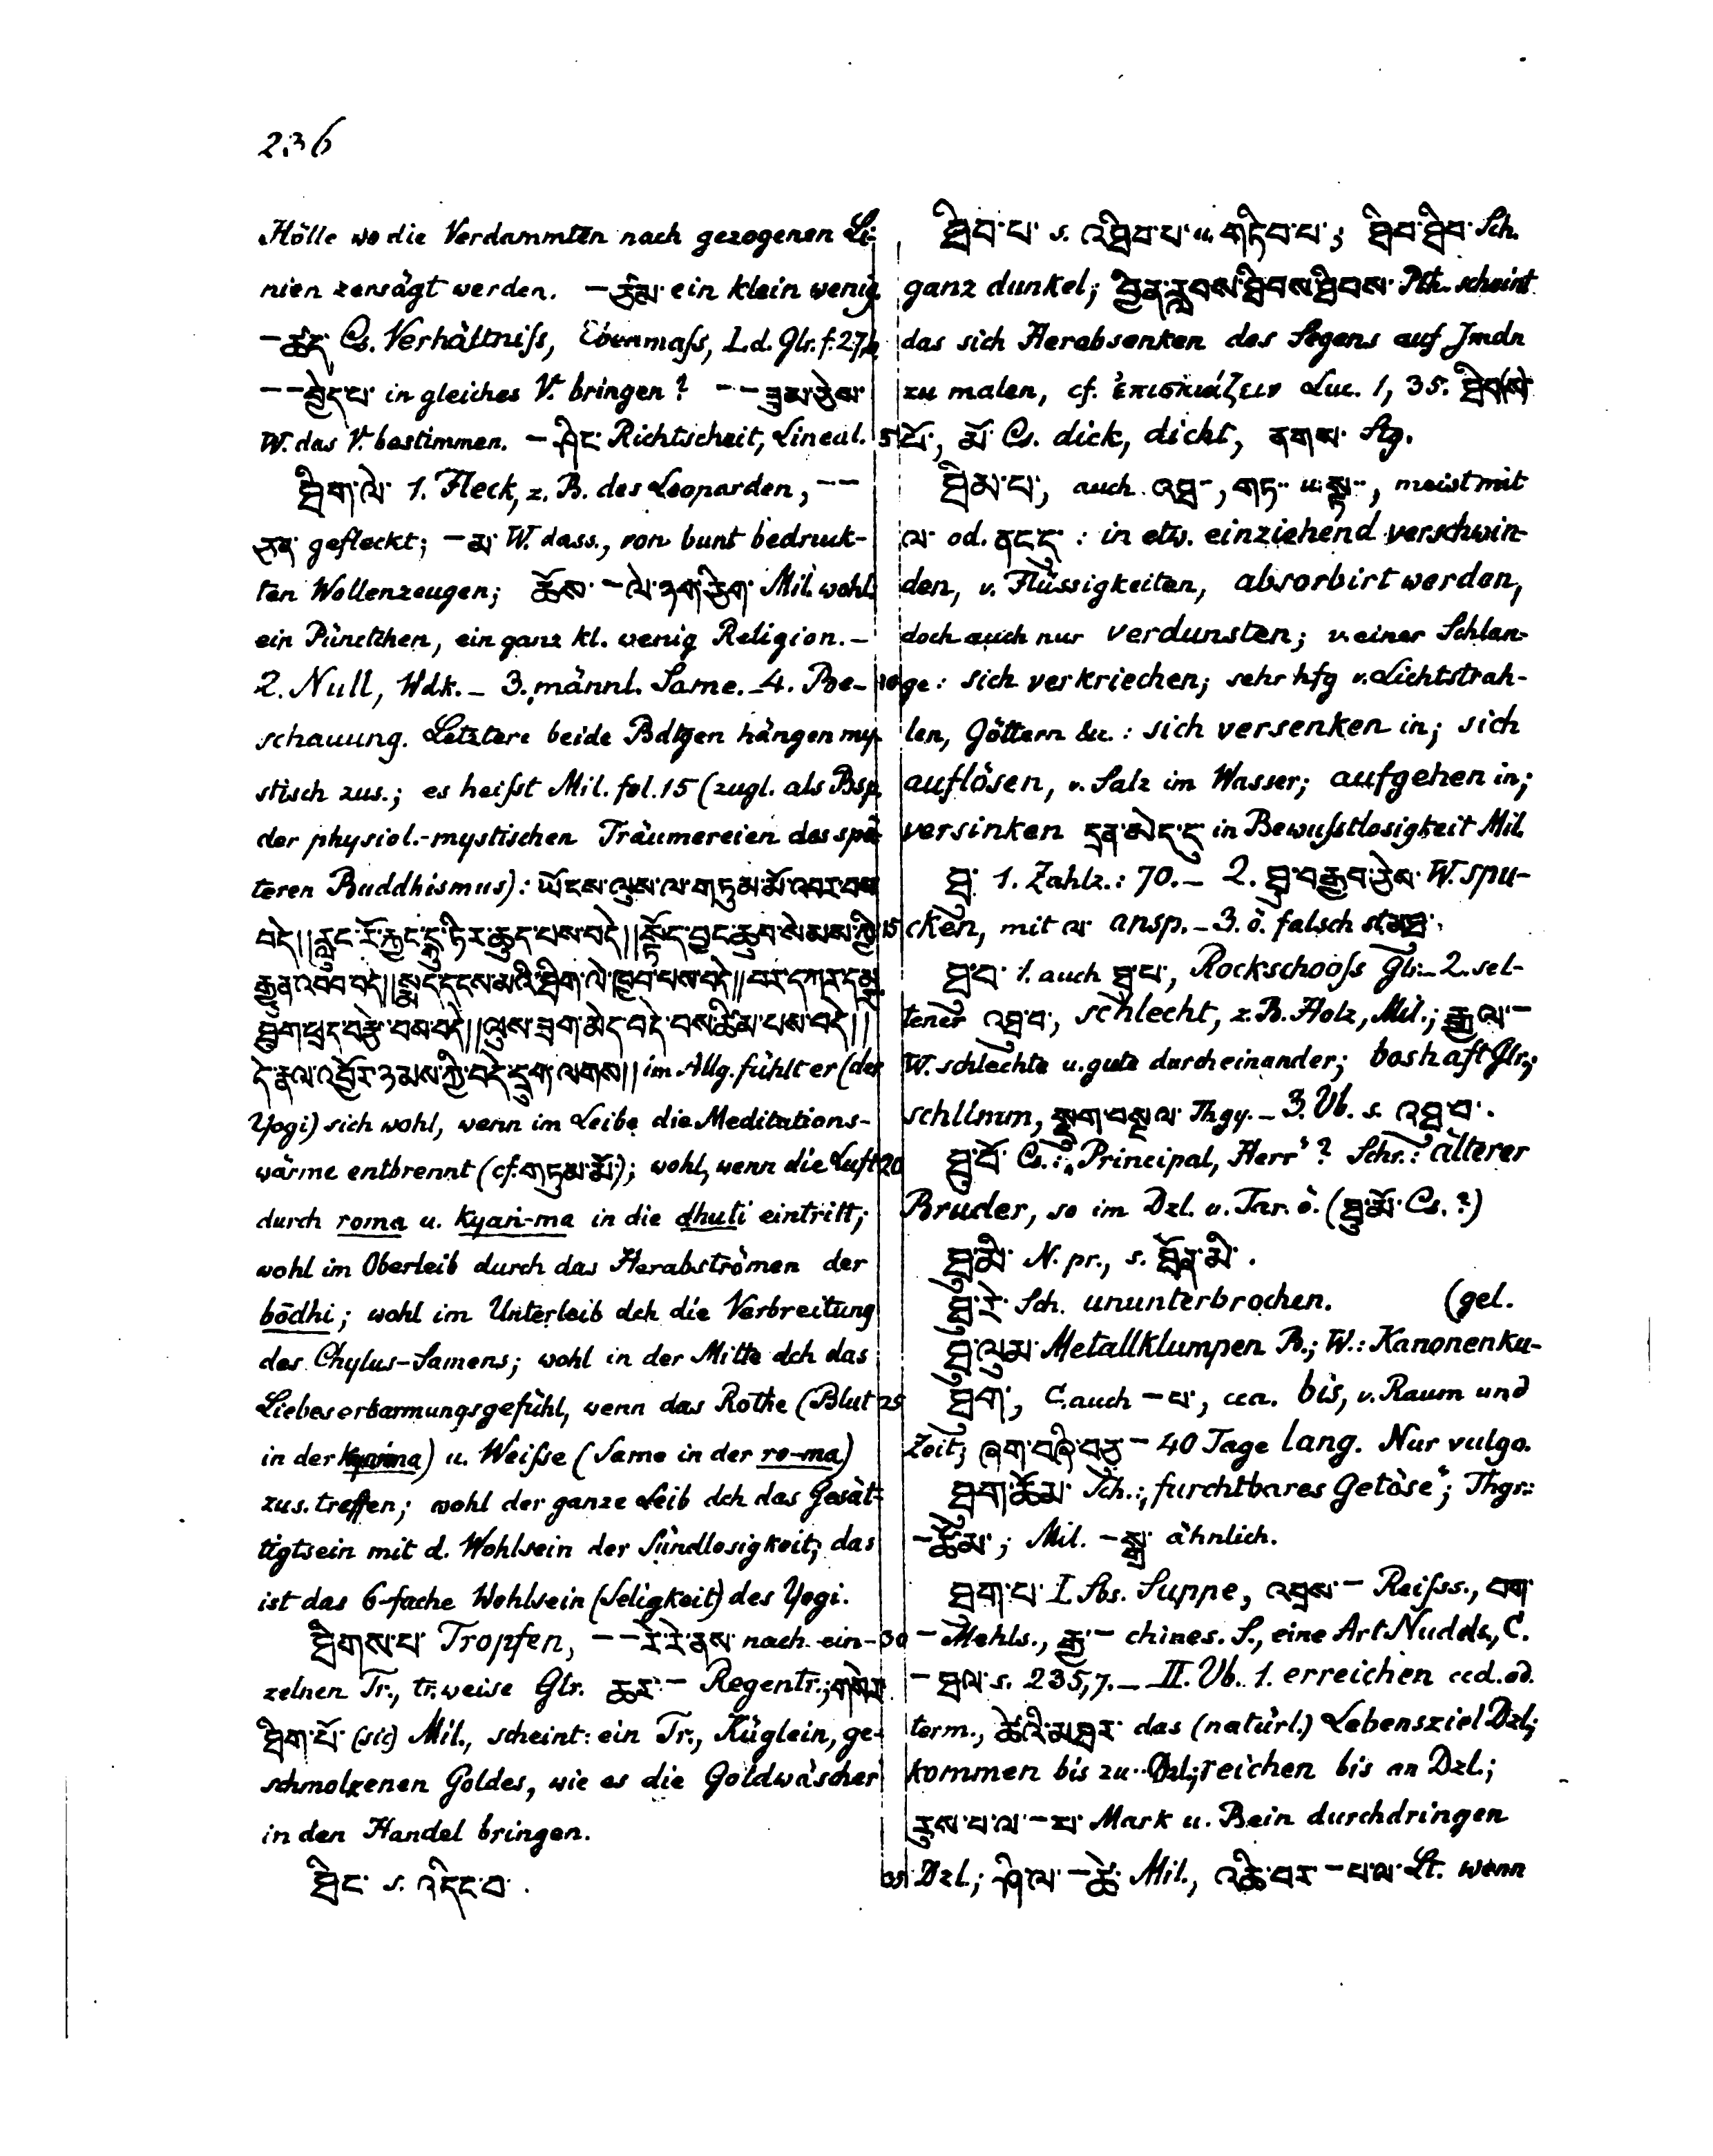 236
Hölle wo die Verdammten nach gezogenen Li-
nien zersägt werden. — ཙམ་ ein klein wenig
— ཚད་ Cs. Verhältniſs, Ebenmaſs, Ld. Glr. f. 27,b
— — བྱེད་པ་ in gleiches V. bringen? — — ཟུམ་ཅེས་
W. das V. bestimmen. — ཤིང་ Richtscheit, Lineal.
ཐིག་ལེ་ 1. Fleck, z. B. des Leoparden, — —
ཅན་ gefleckt; — མ་ W. dass., von bunt bedruck-
ten Wollenzeugen; ཆོས་ — ལེ་ཉག་ཅིག་ Mil. wohl:
ein Pünctchen, ein ganz kl. wenig Religion. —
2. Null, Wdk. — 3. männl. Same. — 4. Be-
schauung. Letztere beide Bdtgen hängen my-
stisch zus.; es heiſst Mil. fol. 15 (zugl. als Bsp.
der physiol.-mystischen Träumereien des spä-
teren Buddhismus): ཡོངས་ལུས་ལ་གཏུམ་མོ་འབར་བས་
བདེ།།རླུང་རོ་རྐྱང་དྷུ་ཏིར་ཚུད་པས་བདེ།།སྟོད་བྱང་ཆུབ་སེམས་ཀྱི་
རྒྱུན་འབབ་བདེ།།སྨད་དྭངས་མའི་ཐིག་ལེ་ཁྱབ་པས་བདེ།།བར་དཀར་དམར་
ཐུག་ཕྲད་བརྩེ་བས་བདེ།།ལུས་ཟག་མེད་བདེ་བས་ཚིམ་པས་བདེ།།
དེ་རྣལ་འབྱོར་ཉམས་ཀྱི་བདེ་དྲུག་ལགས།། im Allg. fühlt er (der
Yogi) sich wohl, wenn im Leibe die Meditations-
wärme entbrennt (cf. གཏུམ་མོ་); wohl, wenn die Luft
durch roma u. kyaṅ-ma in die dhuti eintritt;
wohl im Oberleib durch das Herabströmen der
bōdhi; wohl im Unterleib dch die Verbreitung
des Chylus-Samens; wohl in der Mitte dch das
Liebeserbarmungsgefühl, wenn das Rothe (Blut
in der kyaṅma) u. Weiſse (Same in der ro-ma)
zus. treffen; wohl der ganze Leib dch das Gesät-
tigtsein mit d. Wohlsein der Sündlosigkeit; das
ist das 6-fache Wohlsein (Seligkeit) des Yogi.
ཐིགས་པ་ Tropfen, — — རེ་རེ་ནས་ nach ein-
zelnen Tr., tr.weise Glr. ཆར་ — Regentr.; གསེར་
ཐིག་པོ་ (sic) Mil., scheint: ein Tr., Küglein, ge-
schmolzenen Goldes, wie es die Goldwäscher
in den Handel bringen.
ཐིང་ s. འདིང་བ་.
ཐིབ་པ་ s. འཐིབ་པ་ u. གཏིབ་པ་; ཐིབ་ཐིབ་ Sch.
ganz dunkel; བྱིན་རླབས་ཐིབས་ཐིབས་ Pth. scheint
das sich Herabsenken des Segens auf Jmdn
zu malen, cf. ἐπισκιάζειν Luc. 1, 35. ཐིབ(ས)་
5 པོ་, མོ་ Cs. dick, dicht, ནགས་ Stg.
ཐིམ་པ་, auch འཐ —, གཏ·· u. སྟ··, meist mit
ལ་ od. ནང་དུ་ : in etw. einziehend verschwin-
den, v. Flüssigkeiten, absorbirt werden,
doch auch nur verdunsten; v. einer Schlan-
10 ge: sich verkriechen; sehr hfg v. Lichtstrah-
len, Göttern &c.: sich versenken in; sich
auflösen, v. Salz im Wasser; aufgehen in;
versinken དྲན་མེད་དུ་ in Bewuſstlosigkeit Mil.
ཐུ་ 1. Zahlz.: 70. — 2. ཐུ་བརྒྱབ་ཅེས་ W. spu-
15 cken, mit ལ་ ansp. — 3. ö. falsch st. མཐུ་.
ཐུ་བ་ 1. auch ཐུ་པ་, Rockschooſs Glr. — 2. sel-
tener འཐུ་བ་, schlecht, z. B. Holz, Mil.; རྒྱལ་ —
W. schlechte u. gute durcheinander; boshaft Glr.;
schlimm, སྡུག་བསྔལ་ Thgy. — 3. Vb. s. འཐུ་བ་.
20 ཐུ་བོ་ Cs.: „Principal, Herr“? Schr.: älterer
Bruder, so im Dzl. u. Tar. ö. (ཐུ་མོ་ Cs. ?)
ཐུ་མི་ N. pr., s. ཐོན་མི་.
ཐུ་རེ་ Sch. ununterbrochen. (gel.
ཐུ་ལུམ་ Metallklumpen B.; W.: Kanonenku-
25 ཐུག་, C. auch — པ་, cca. bis, v. Raum und
Zeit; ཞག་བཞི་བཅུ་ — 40 Tage lang. Nur vulgo.
ཐུག་ཆོམ་ Sch.: „furchtbares Getöse“; Thgr.:
— ཆོམ་; Mil. — སྒྲ་ ähnlich.
ཐུག་པ་ I. Sbs. Suppe, འབྲས་ — Reiſss., བག་
30 — Mehls., རྒྱ་ — chines. S., eine Art Nudeln, C.
— ཐལ་ s. 235,7. — II. Vb. 1. erreichen ccd. od.
term., ཚེའི་མཐར་ das (natürl.) Lebensziel Dzl.;
kommen bis zu ·· Dzl.; reichen bis an Dzl.;
རུས་པ་ལ་ — པ་ Mark u. Bein durchdringen
35 Dzl.; ཤི་ལ་ — ཚེ་ Mil., འཆི་བར་ — པ་ལ་ Lt. wenn